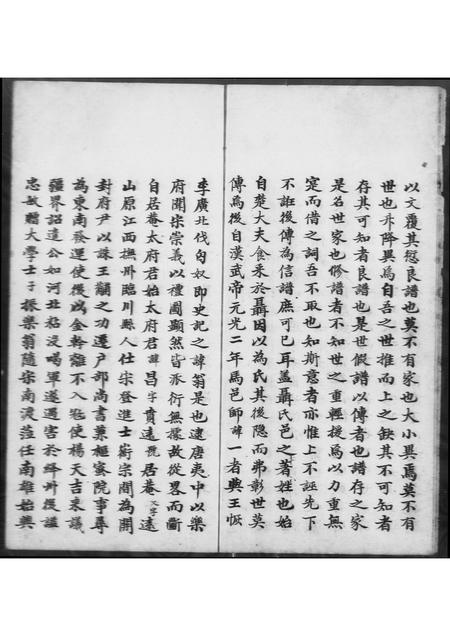 以文覆其愆良譜也莫不有家也大小異焉莫不有
世也升降異為自吾之世推而上之缺其不可知者
存其可知者良譜也是世假譜以傳者也譜存之家
是名世家也修譜者不知世之重輕援為以力重無
寔而借之詞吾不取也知斯意者亦惟上不誣先下
不誑後傳為信譜庶可已耳蓋聶氏邑之著姓也始
自楚大夫食采於聶因以為氏其後隐而弗彰世莫
傳焉後自漢武帝元光二年馬邑師諱一者與王恢
李廣北伐匈奴即史記之諱翁是也逮唐夷中以樂
府聞宋崇義以禮圖顯然皆派衍無據故從畧而斷
自居菴太府君始太府君諱昌字賁遠號居菴遠
山原江西撫州臨川縣人仕宋登進士蔪宗間為開
封府尹以誅王黼之功遷户部尚書兼樞宻院事尋
為東南發運使後以金斡離不入冦使楊天吉来議
疆界詔遣公如河北粘没喝軍遂遇害於絳州後諡
忠敏贈大學士子振榮翁隨宋南渡蒞任南雄始興